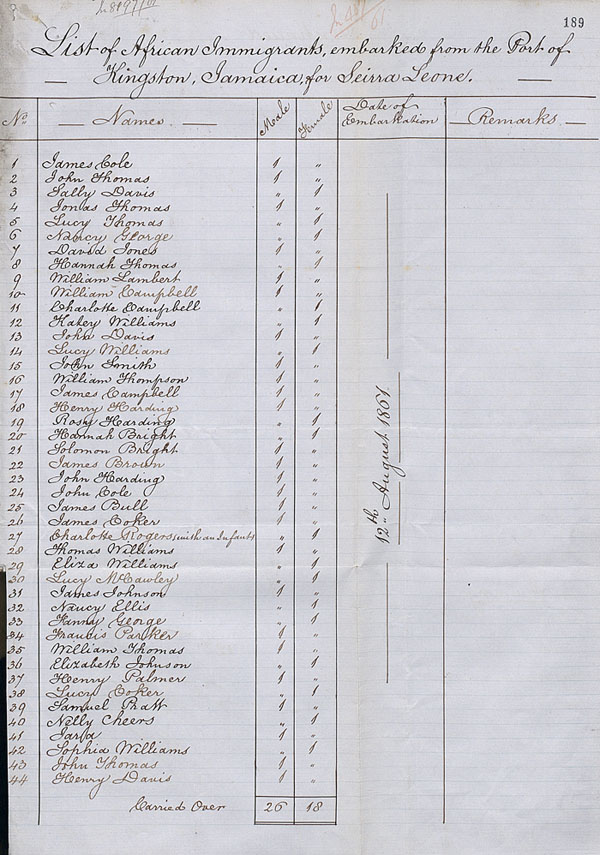 189
List of African Immigrants, embarked from the Port of
— Kingston, Jamaica, for Seirra Leone. —
No. — Names. — Male Female Date of Embarkation — Remarks —
1 James Cole 1 "
2 John Thomas 1 "
3 Sally Davis " 1
4 Jonas Thomas 1 "
5 Lucy Thomas " 1
6 Nancy George " 1
7 David Jones 1 "
8 Hannah Thomas " 1
9 William Lambert 1 "
10 William Campbell 1 "
11 Charlotte Campbell " 1
12 Katey Williams " 1
13 John Davis 1 "
14 Lucy Williams " 1
15 John Smith 1 "
16 William Thompson 1 "
17 James Campbell 1 "
18 Henry Harding 1 "
19 Rosy Harding " 1
20 Hannah Bright " 1
21 Solomon Bright 1 "
22 James Brown 1 "
23 John Harding 1 "
24 John Cole 1 "
25 James Bull 1 "
26 James Coker 1 "
27 Charlotte Rogers (with an Infant) " 1
28 Thomas Williams 1 "
29 Eliza Williams " 1
30 Lucy McCawley " 1
31 James Johnson 1 "
32 Nancy Ellis " 1
33 Fanny George " 1
34 Francis Parker 1 "
35 William Thomas 1 "
36 Elizabeth Johnson " 1
37 Henry Palmer 1 "
38 Lucy Coker " 1
39 Samuel Pratt 1 "
40 Nelly Cheers " 1
41 1 "
42 Sophia Williams " 1
43 John Thomas 1 "
44 Henry Davis 1 "
12th August 1861.
Carried Over 26 18